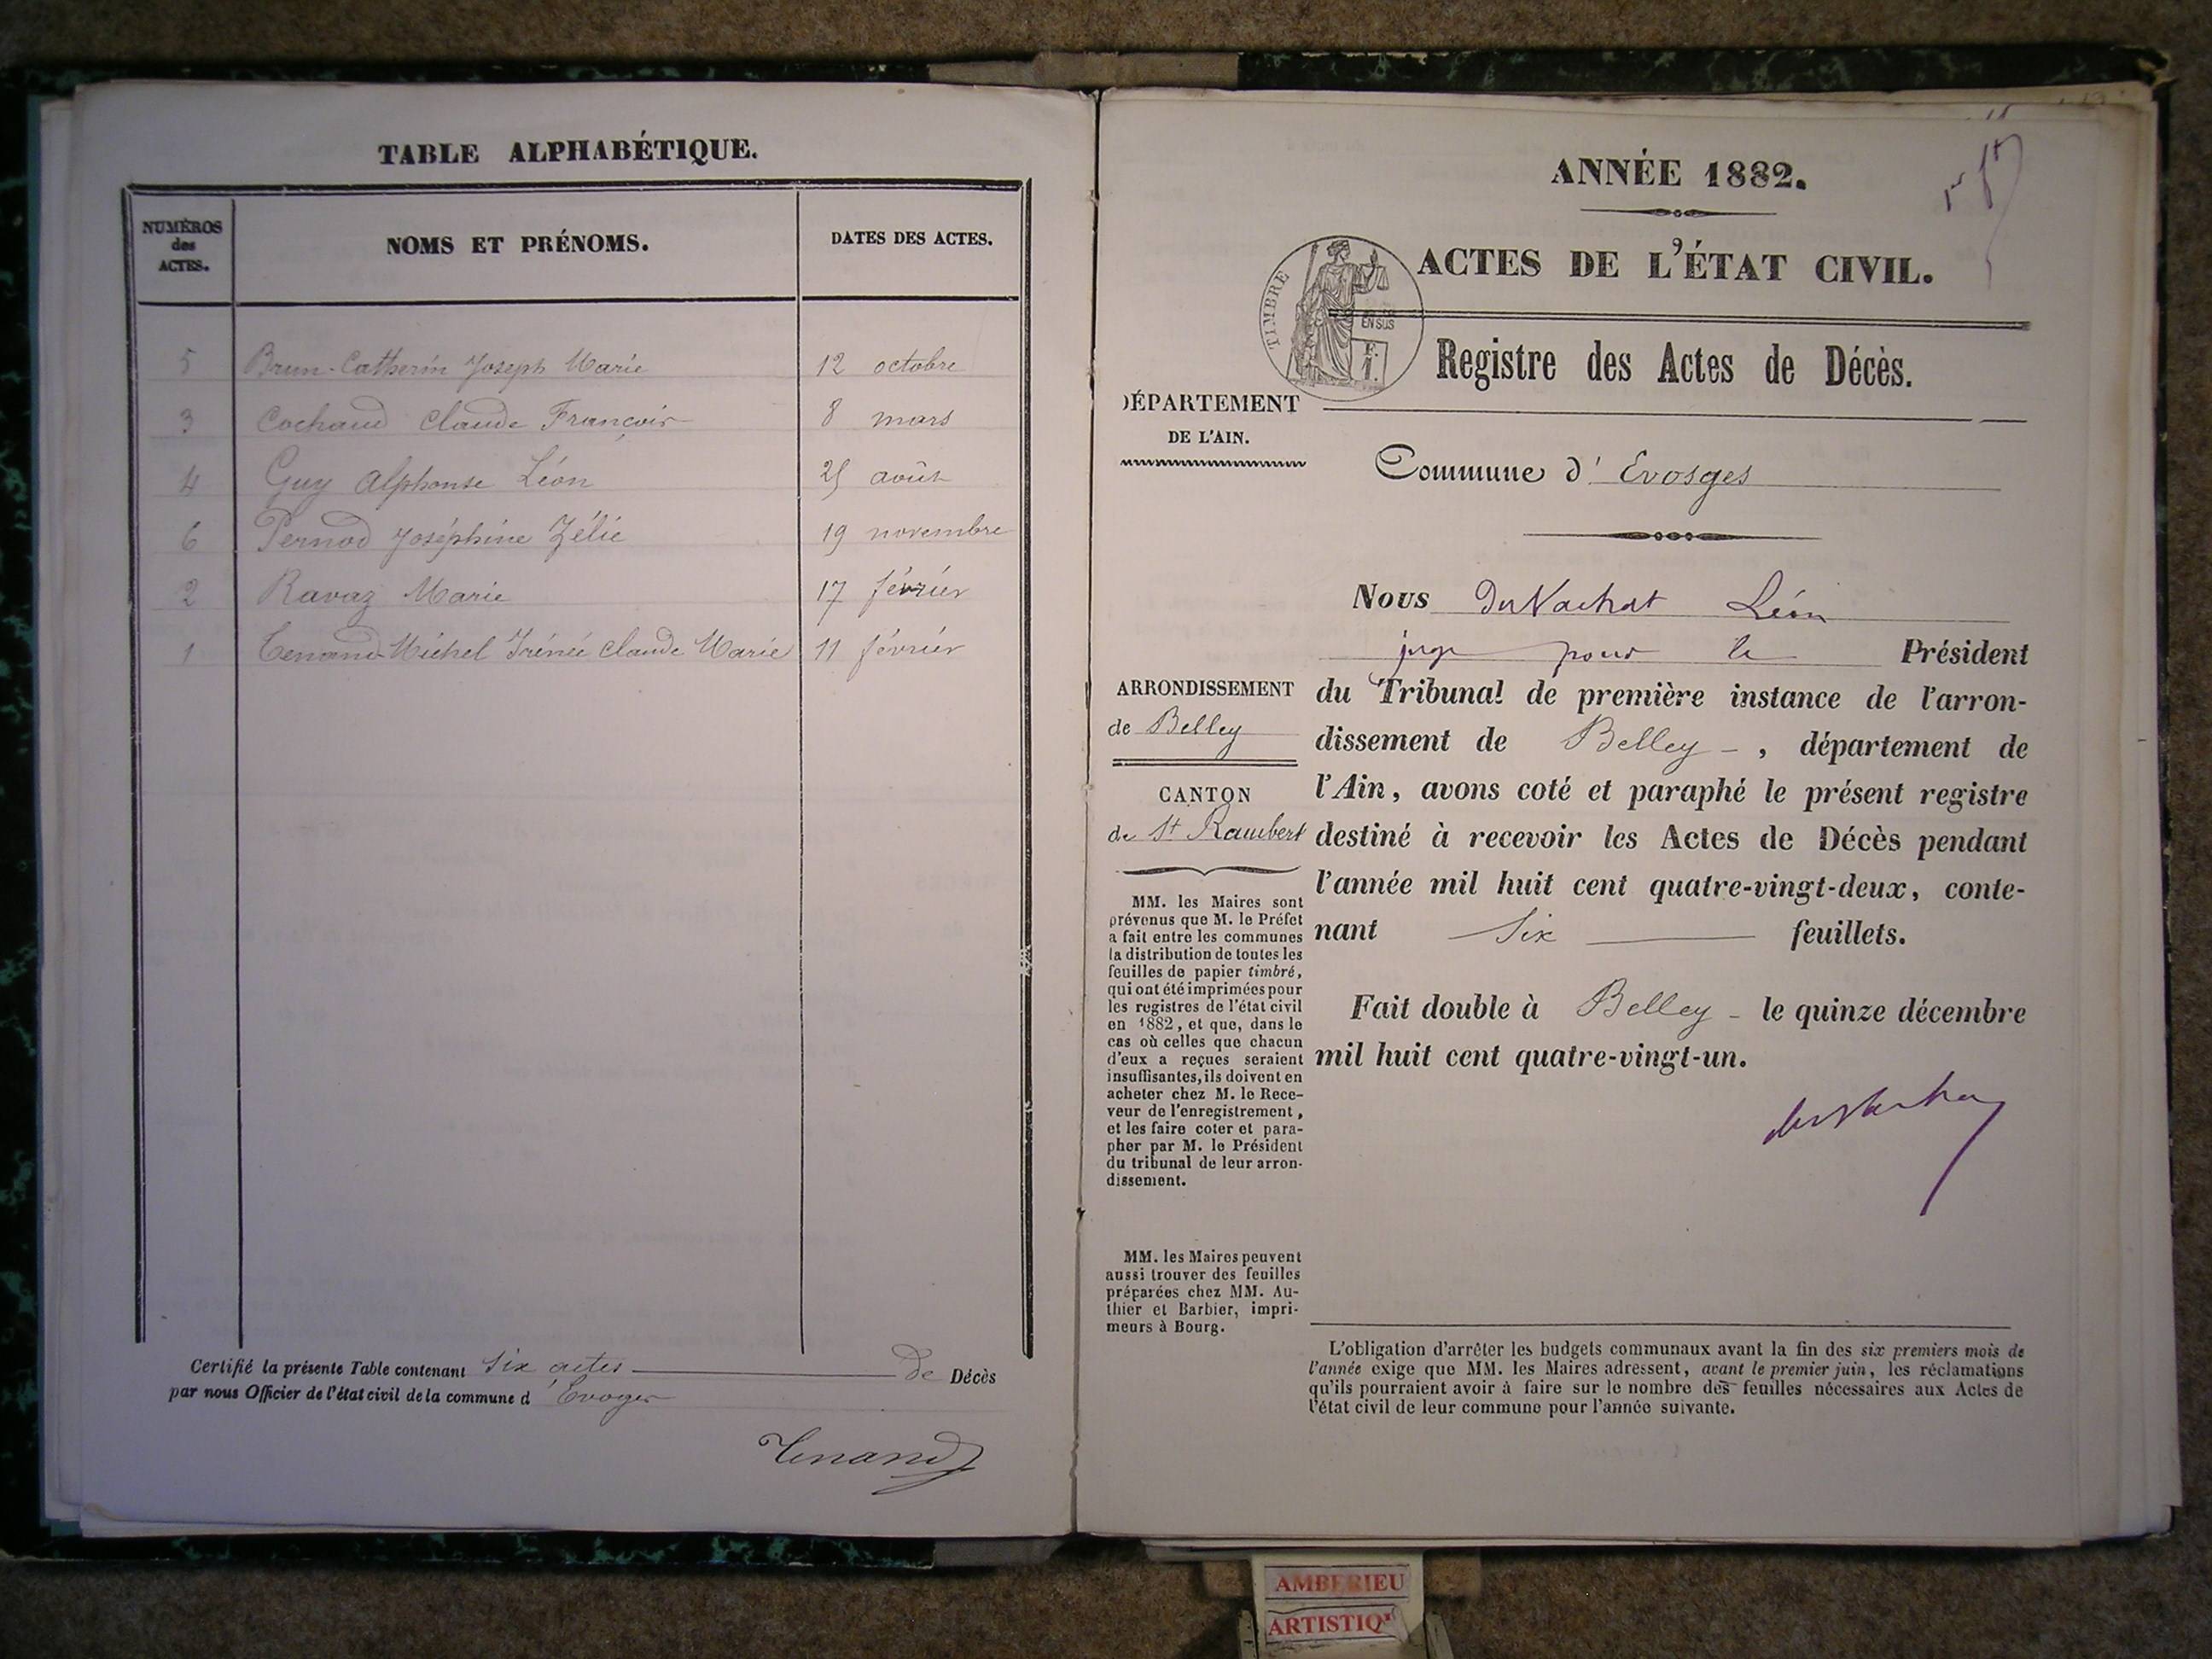 TABLE ALPHABÉTIQUE.
NUMÉROS
des
ACTES.
NOMS ET PRÉNOMS.
DATES DES ACTES.
5 Brun-Catherin Joseph Marie 12 octobre
3 Cochaud Claude François 8 mars
4 Guy Alphonse Léon 25 août
6 Pernod Joséphine Zélie 19 novembre
2 Ravaz Marie 17 février
1 Tenand Michel Irénée Claude Marie 11 février
Certifié la présente Table contenant six actes de Décès
par nous Officier de l'état civil de la commune d'Evosges
Tenand
ANNÉE 1882.
ACTES DE L'ÉTAT CIVIL.
TIMBRE
EN SUS
F.
1.
Registre des Actes de Décès.
DÉPARTEMENT
DE L'AIN.
Commune d'Evosges
ARRONDISSEMENT
de Belley
CANTON
de St Rambert
MM. les Maires sont
prévenus que M. le Préfet
a fait entre les communes
la distribution de toutes les
feuilles de papier timbré,
qui ont été imprimées pour
les registres de l'état civil
en 1882, et que, dans le
cas où celles que chacun
d'eux a reçues seraient
insuffisantes, ils doivent en
acheter chez M. le Rece-
veur de l'enregistrement,
et les faire coter et para-
pher par M. le Président
du tribunal de leur arron-
dissement.
MM. les Maires peuvent
aussi trouver des feuilles
préparées chez MM. Au-
thier et Barbier, impri-
meurs à Bourg.
Nous Du Vachat Léon
juge pour le Président
du Tribunal de première instance de l'arron-
dissement de Belley -, département de
l'Ain, avons coté et paraphé le présent registre
destiné à recevoir les Actes de Décès pendant
l'année mil huit cent quatre-vingt-deux, conte-
nant Six feuillets.
Fait double à Belley - le quinze décembre
mil huit cent quatre-vingt-un.
L'obligation d'arrêter les budgets communaux avant la fin des six premiers mois de
l'année exige que MM. les Maires adressent, avant le premier juin, les réclamations
qu'ils pourraient avoir à faire sur le nombre des feuilles nécessaires aux Actes de
l'état civil de leur commune pour l'année suivante.
AMBERIEU
ARTISTIQ